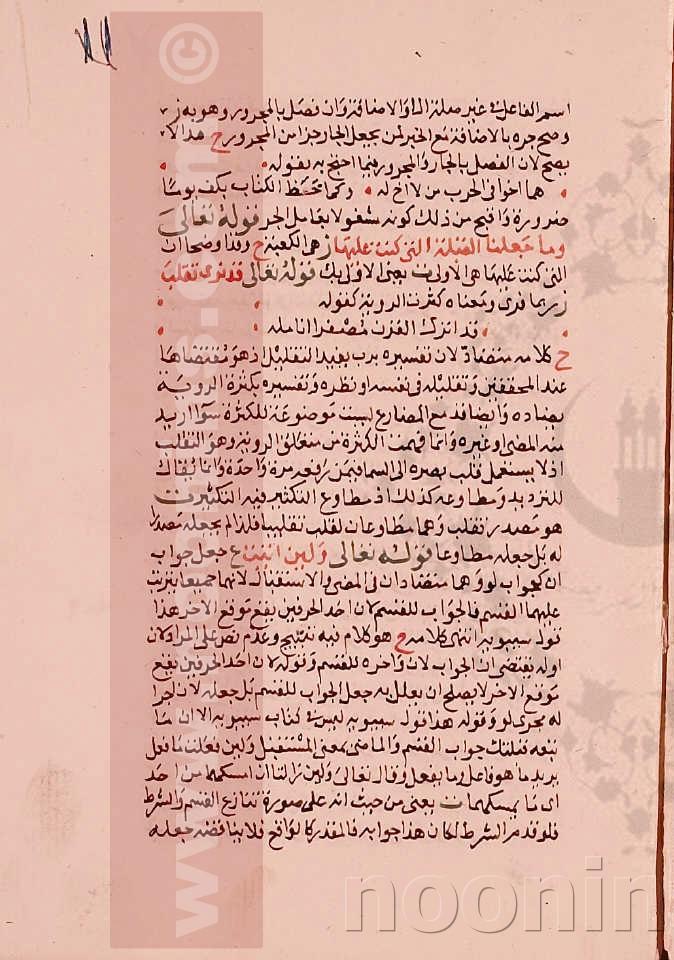 اسم الفاعل في غير صلة ال والاضافة وان فصل بالمجرور وهو به ز
وصح جره بالاضافة مع الخبر لمن يجعل الجار جزا من المجرور ح هذا لا
يصح لان الفصل بالجار والمجرور فيما احتج به بقوله
هما اخوا في الحرب من لا اخا له وكما خط الكتاب بكف يوما
ضرورة واقبح من ذلك كونه مشغولا بعامل الجر قوله تعالى
وما جعلنا القبلة التي كنت عليها ز هي الكعبة ح وقد اوضحنا ان
التي كنت عليها هي الاولى ت يعني الاول بك قوله تعالى قد نرى تقلب
ز ربما نرى ومعناه كثرت الروية كقوله
قد اترك القرن مصفرا انامله
ح كلامه متضاد لان تفسيره برب يفيد التقليل اذ هو مقتضاها
عند المحققين وتقليله في نفسه او نظره وتفسيره بكثرة الروية
يضاده وايضا قد مع المضارع ليست موضوعة للكثرة سوا اريد
منه المضي او غيره وانما فهمت الكثرة من متعلق الروية وهو التقلب
اذ لا يستعمل قلب بصره الى السما فيمن رفعه مرة واحدة وانما يقال
للترديد ومطاوعه كذلك اذ مطاوع التكثير فيه التكثير ت
هو مصدر تقلب وهما مطاوعان لقلب تقليبا فلذا لم يجعله مصدرا
له بل جعله مطاوعا قوله تعالى ولين اتيت ع جعل جواب
ان كجواب لو وهما متضادان في المضي والاستقبال لانهما جميعا يترتب
عليهما القسم فالجواب للقسم لان احد الحرفين يقع موقع الاخر هذا
قول سيبويه انتهى كلامه ح هو كلام فيه تثبيج وعدم نص على المراد لان
اوله يقتضي ان الجواب لان واخره للقسم وقوله لان احد الحرفين يقع
موقع الاخر لا يصلح ان يعلل به جعل الجواب للقسم بل جعله لان اجرا
له مجرى لو وقوله هذا قول سيبويه ليس في كتاب سيبويه الا ان ما
تبعه قبلتك جواب القسم والماضي بمعنى المستقبل ولين فعلت ما فعل
يريد ما هو فاعل وما يفعل وقال تعالى ولين زالتا ان امسكهما من احد
اى ما يمسكهما ت يعني من حيث انه على صورة تنازع القسم والشرط
فلو قدم الشرط لكان هذا جوابه فالمقدر كالواقع فلا يناقضه جعله
noonin